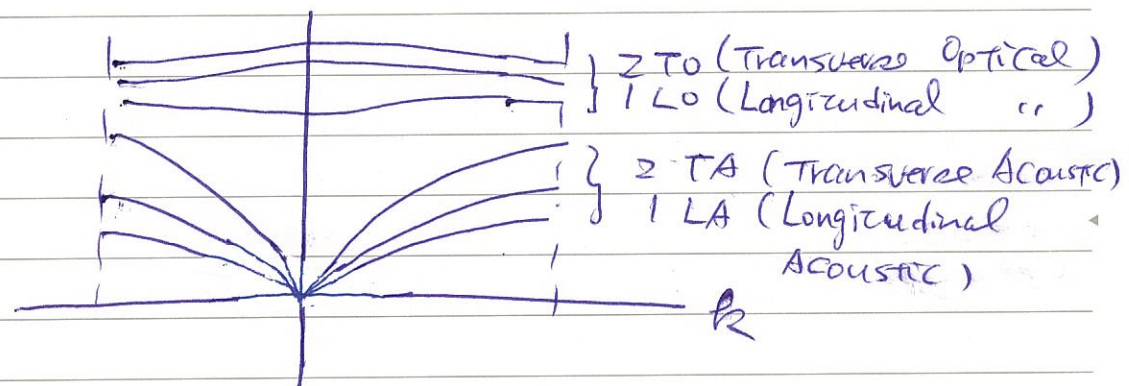 2 TO (Transverse Optical)
1 LO (Longitudinal " )
2 TA (Transverse Acoustic)
1 LA (Longitudinal
Acoustic)
k